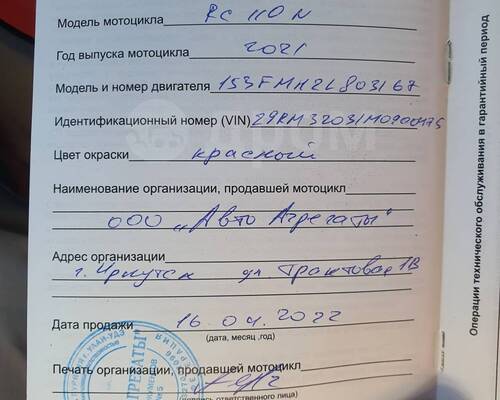 Модель мотоцикла RC 110 N
Год выпуска мотоцикла 2021
Модель и номер двигателя 153FMH2L803167
Идентификационный номер (VIN)
Цвет окраски красный
Наименование организации, продавшей мотоцикл
ООО "Авто Агрегаты"
Адрес организации
г. Иркутск ул. Трактовая 1В
Дата продажи 16.04.2022
(дата, месяц ,год)
Печать организации, продавшей мотоцикл
ответственного лица)
Операции технического обслуживания в гарантийный период